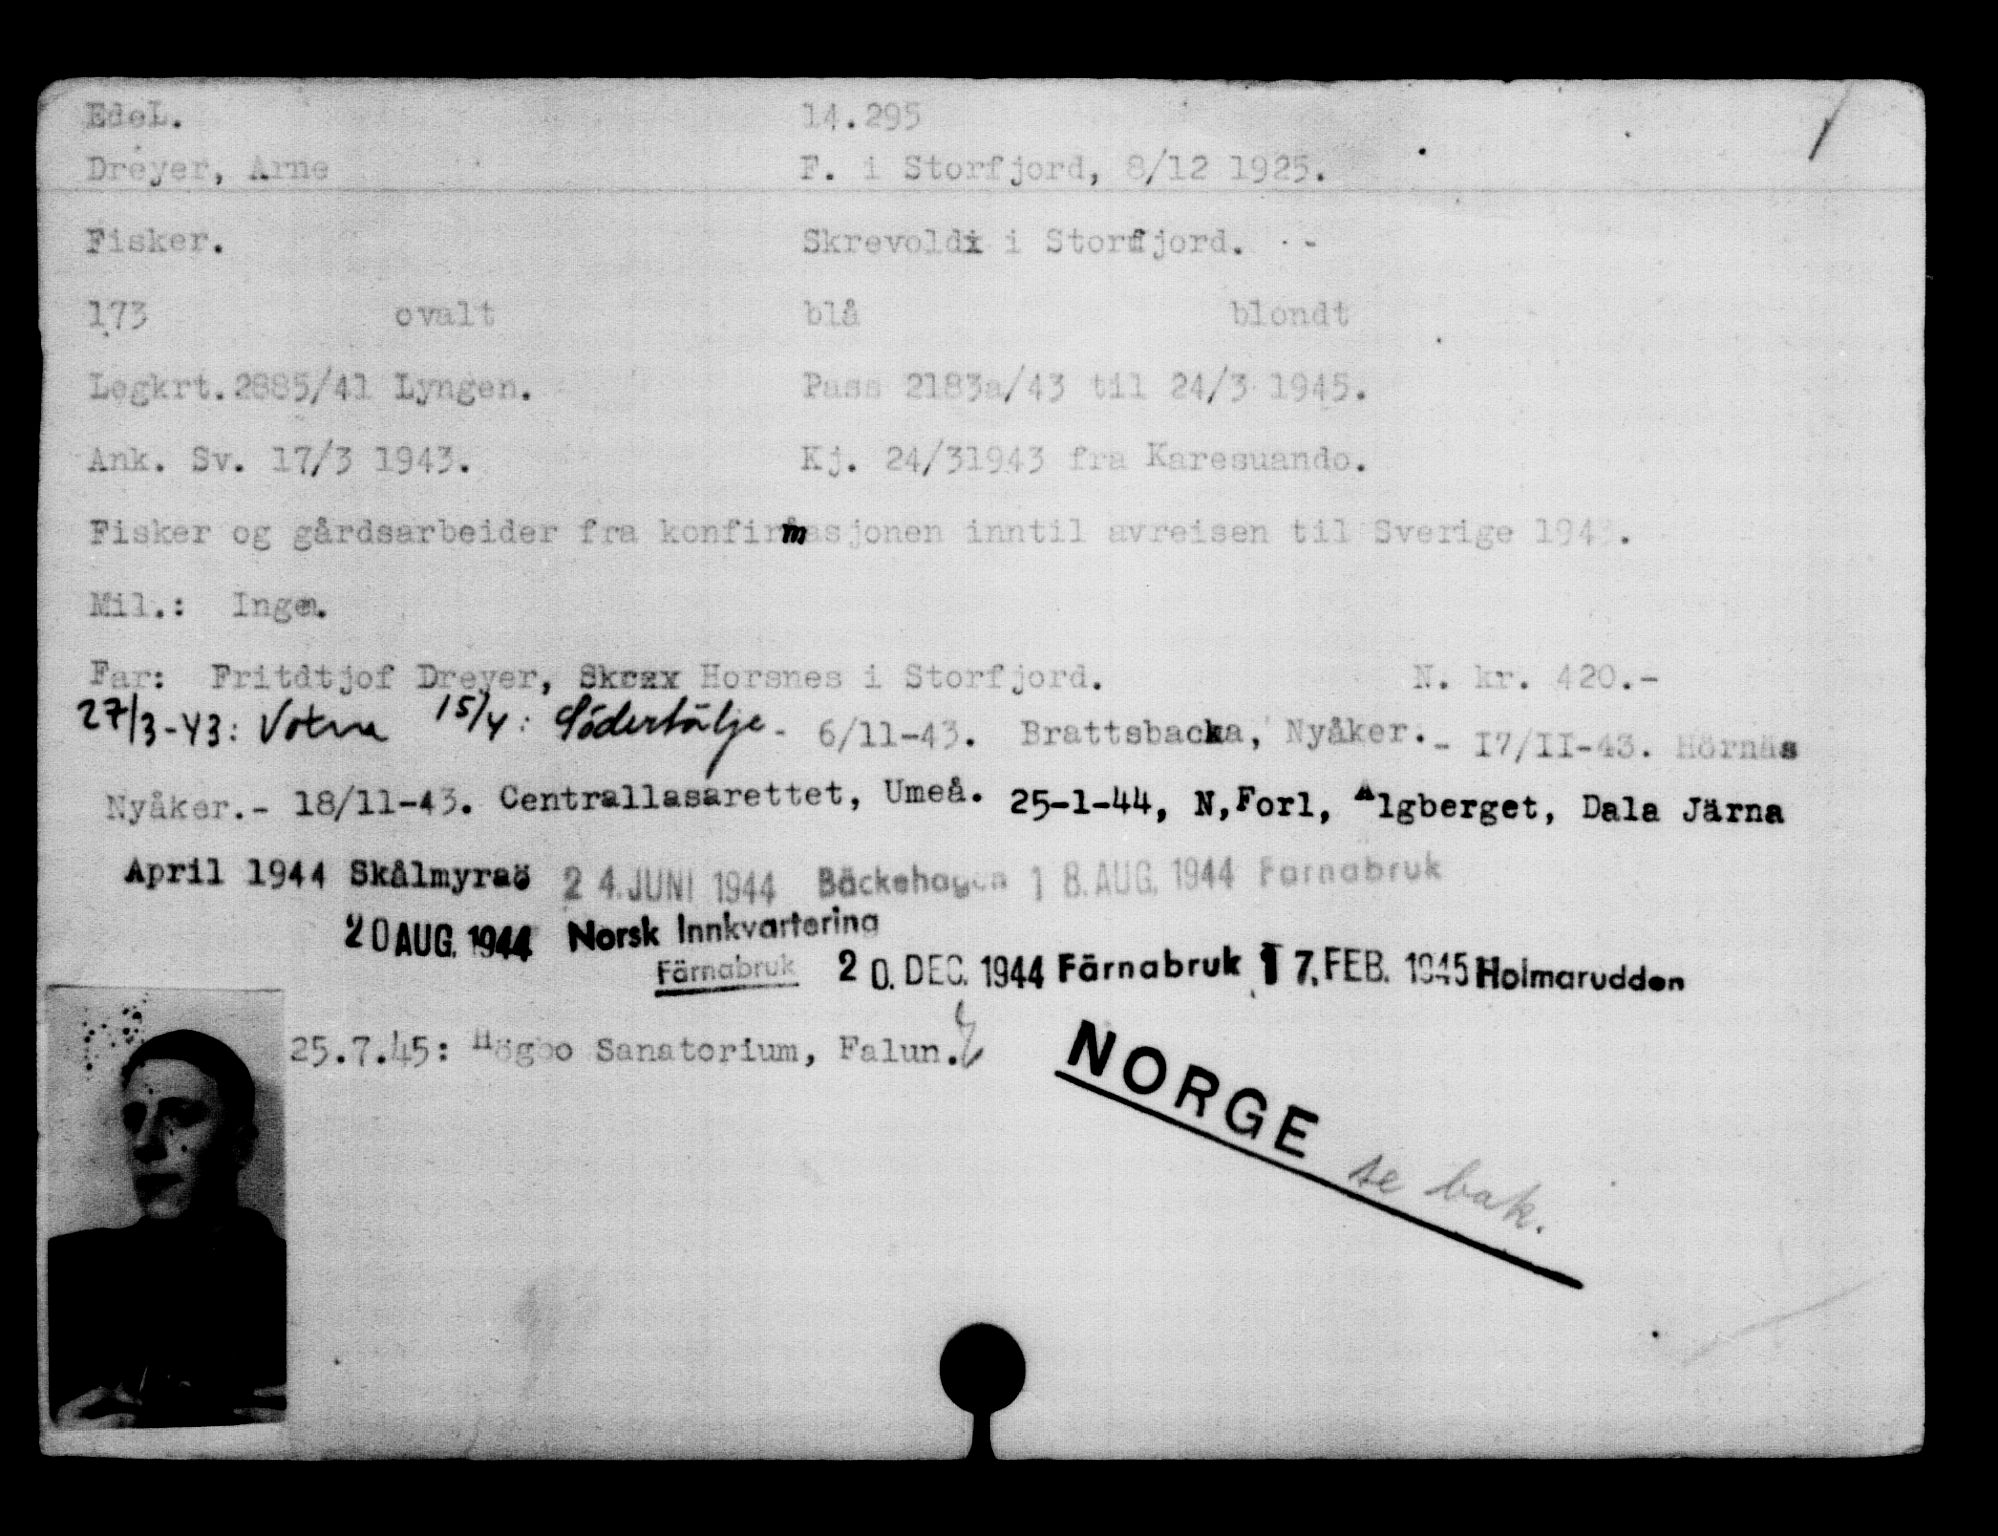 EdeL. 14.295
Dreyer, Arne F. i Storfjord, 8/12 1925.
Fisker. Skrevoldx i Storfjord. - -
173 ovalt blå blondt
Legkrt.2885/41 Lyngen. Pass 2183a/43 til 24/3 1945.
Ank. Sv. 17/3 1943. Kj. 24/31943 fra Karesuando.
Fisker og gårdsarbeider fra konfirmasjonen inntil avreisen til Sverige 1943.
Mil.: Ingen.
Far: Fritdtjof Dreyer, Horsnes i Storfjord. N. kr. 420.-
27/3-43: Votna 15/4: Södertälje - 6/11-43. Brattsbacka, Nyåker.- 17/II-43. Hörnäs
Nyåker.- 18/11-43. Centrallasarettet, Umeå. 25-1-44, N,Forl, Algberget, Dala Järna
April 1944 Skålmyraö 24.JUNI 1944 Bäckehagen 18.AUG.1944 Färnabruk
20AUG.1944 Norsk Innkvartering
Färnabruk 20.DEC.1944 Färnabruk 17.FEB.1945 Holmarudden
25.7.45: Högbo Sanatorium, Falun.
NORGE
se bak.